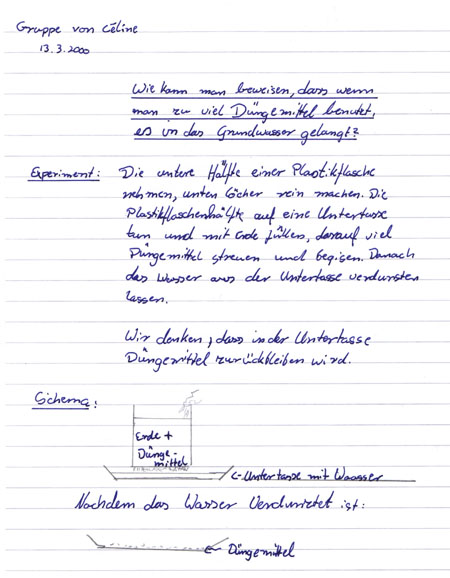 Gruppe von Céline
13.3.2000
Wie kann man beweisen, dass wenn
man zu viel Düngemittel benutzt,
es in das Grundwasser gelangt?
Experiment: Die untere Hälfte einer Plastikflasche
nehmen, unten Löcher rein machen. Die
Plastikflaschenhälfte auf eine Untertasse
tun und mit Erde füllen, darauf viel
Düngemittel streuen und begiesen. Danach
das Wasser aus der Untertasse verdunsten
lassen.
Wir denken, dass in der Untertasse
Düngemittel zurückbleiben wird.
Schema:
Erde +
Dünge-
mittel
Untertasse mit Waasser
Nachdem das Wasser Verdunstet ist:
Düngemittel